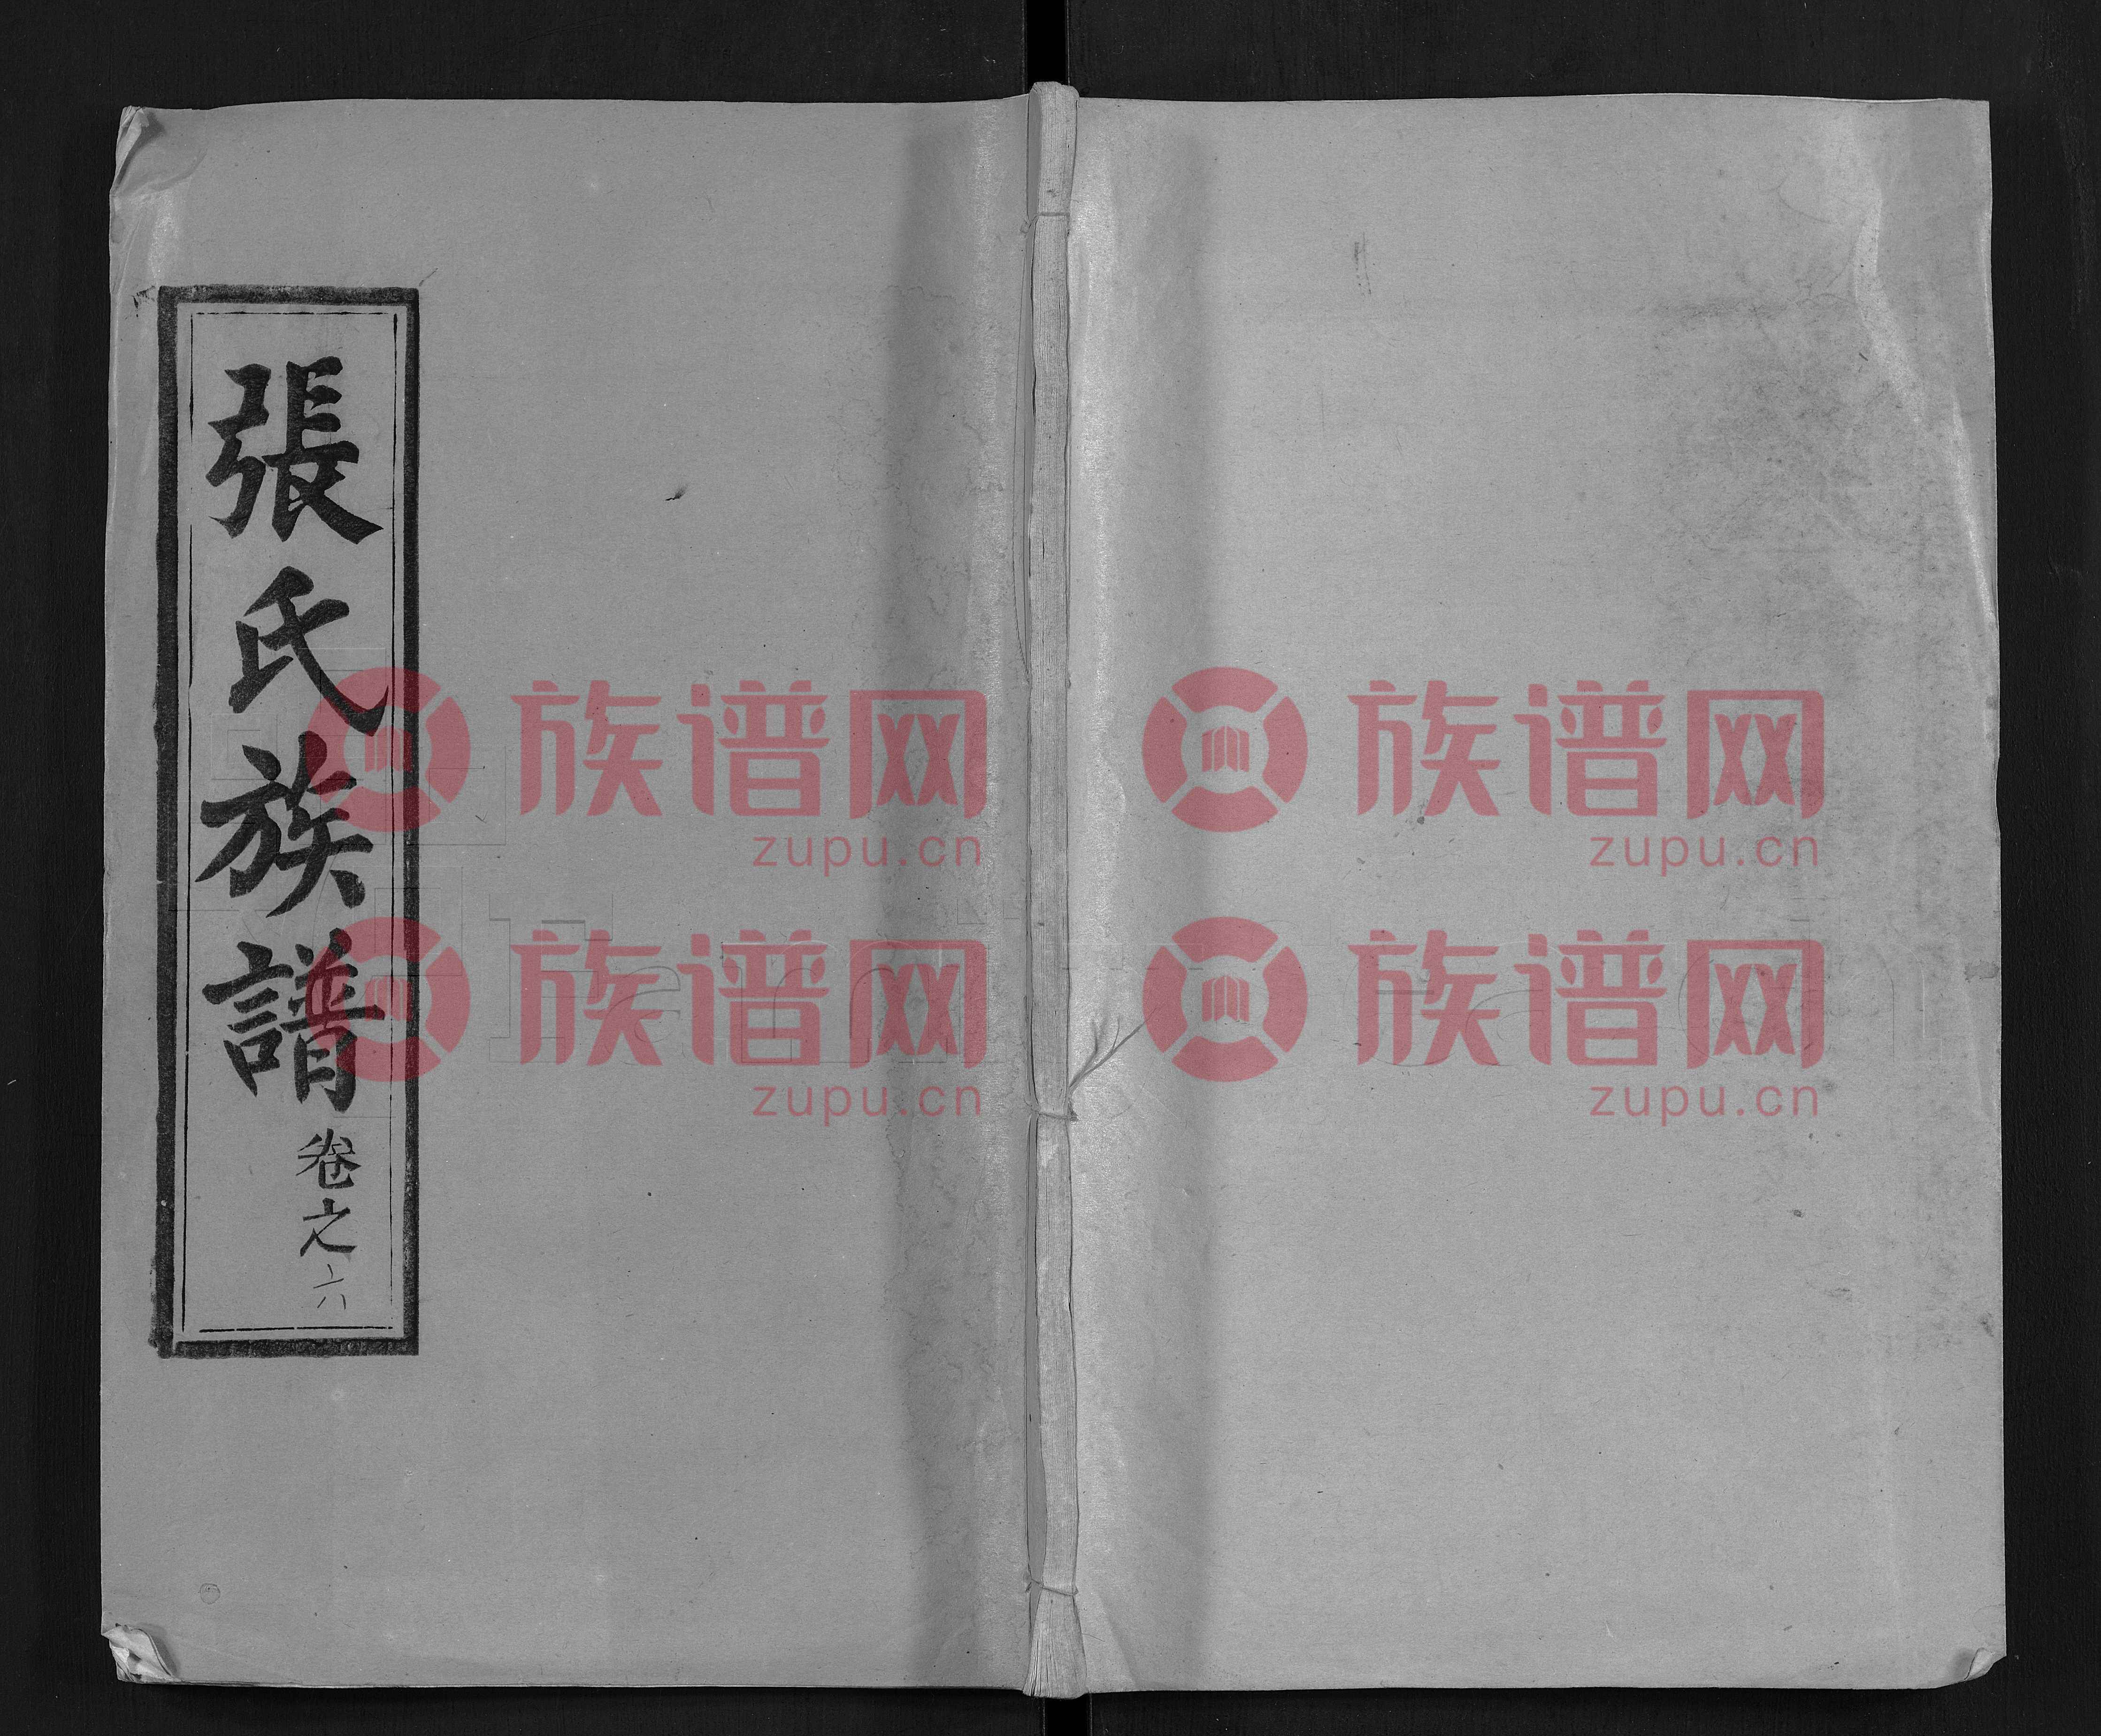 張氏族譜
卷之六
族谱网
zupu.cn
族谱网
zupu.cn
族谱网
zupu.cn
族谱网
zupu.cn